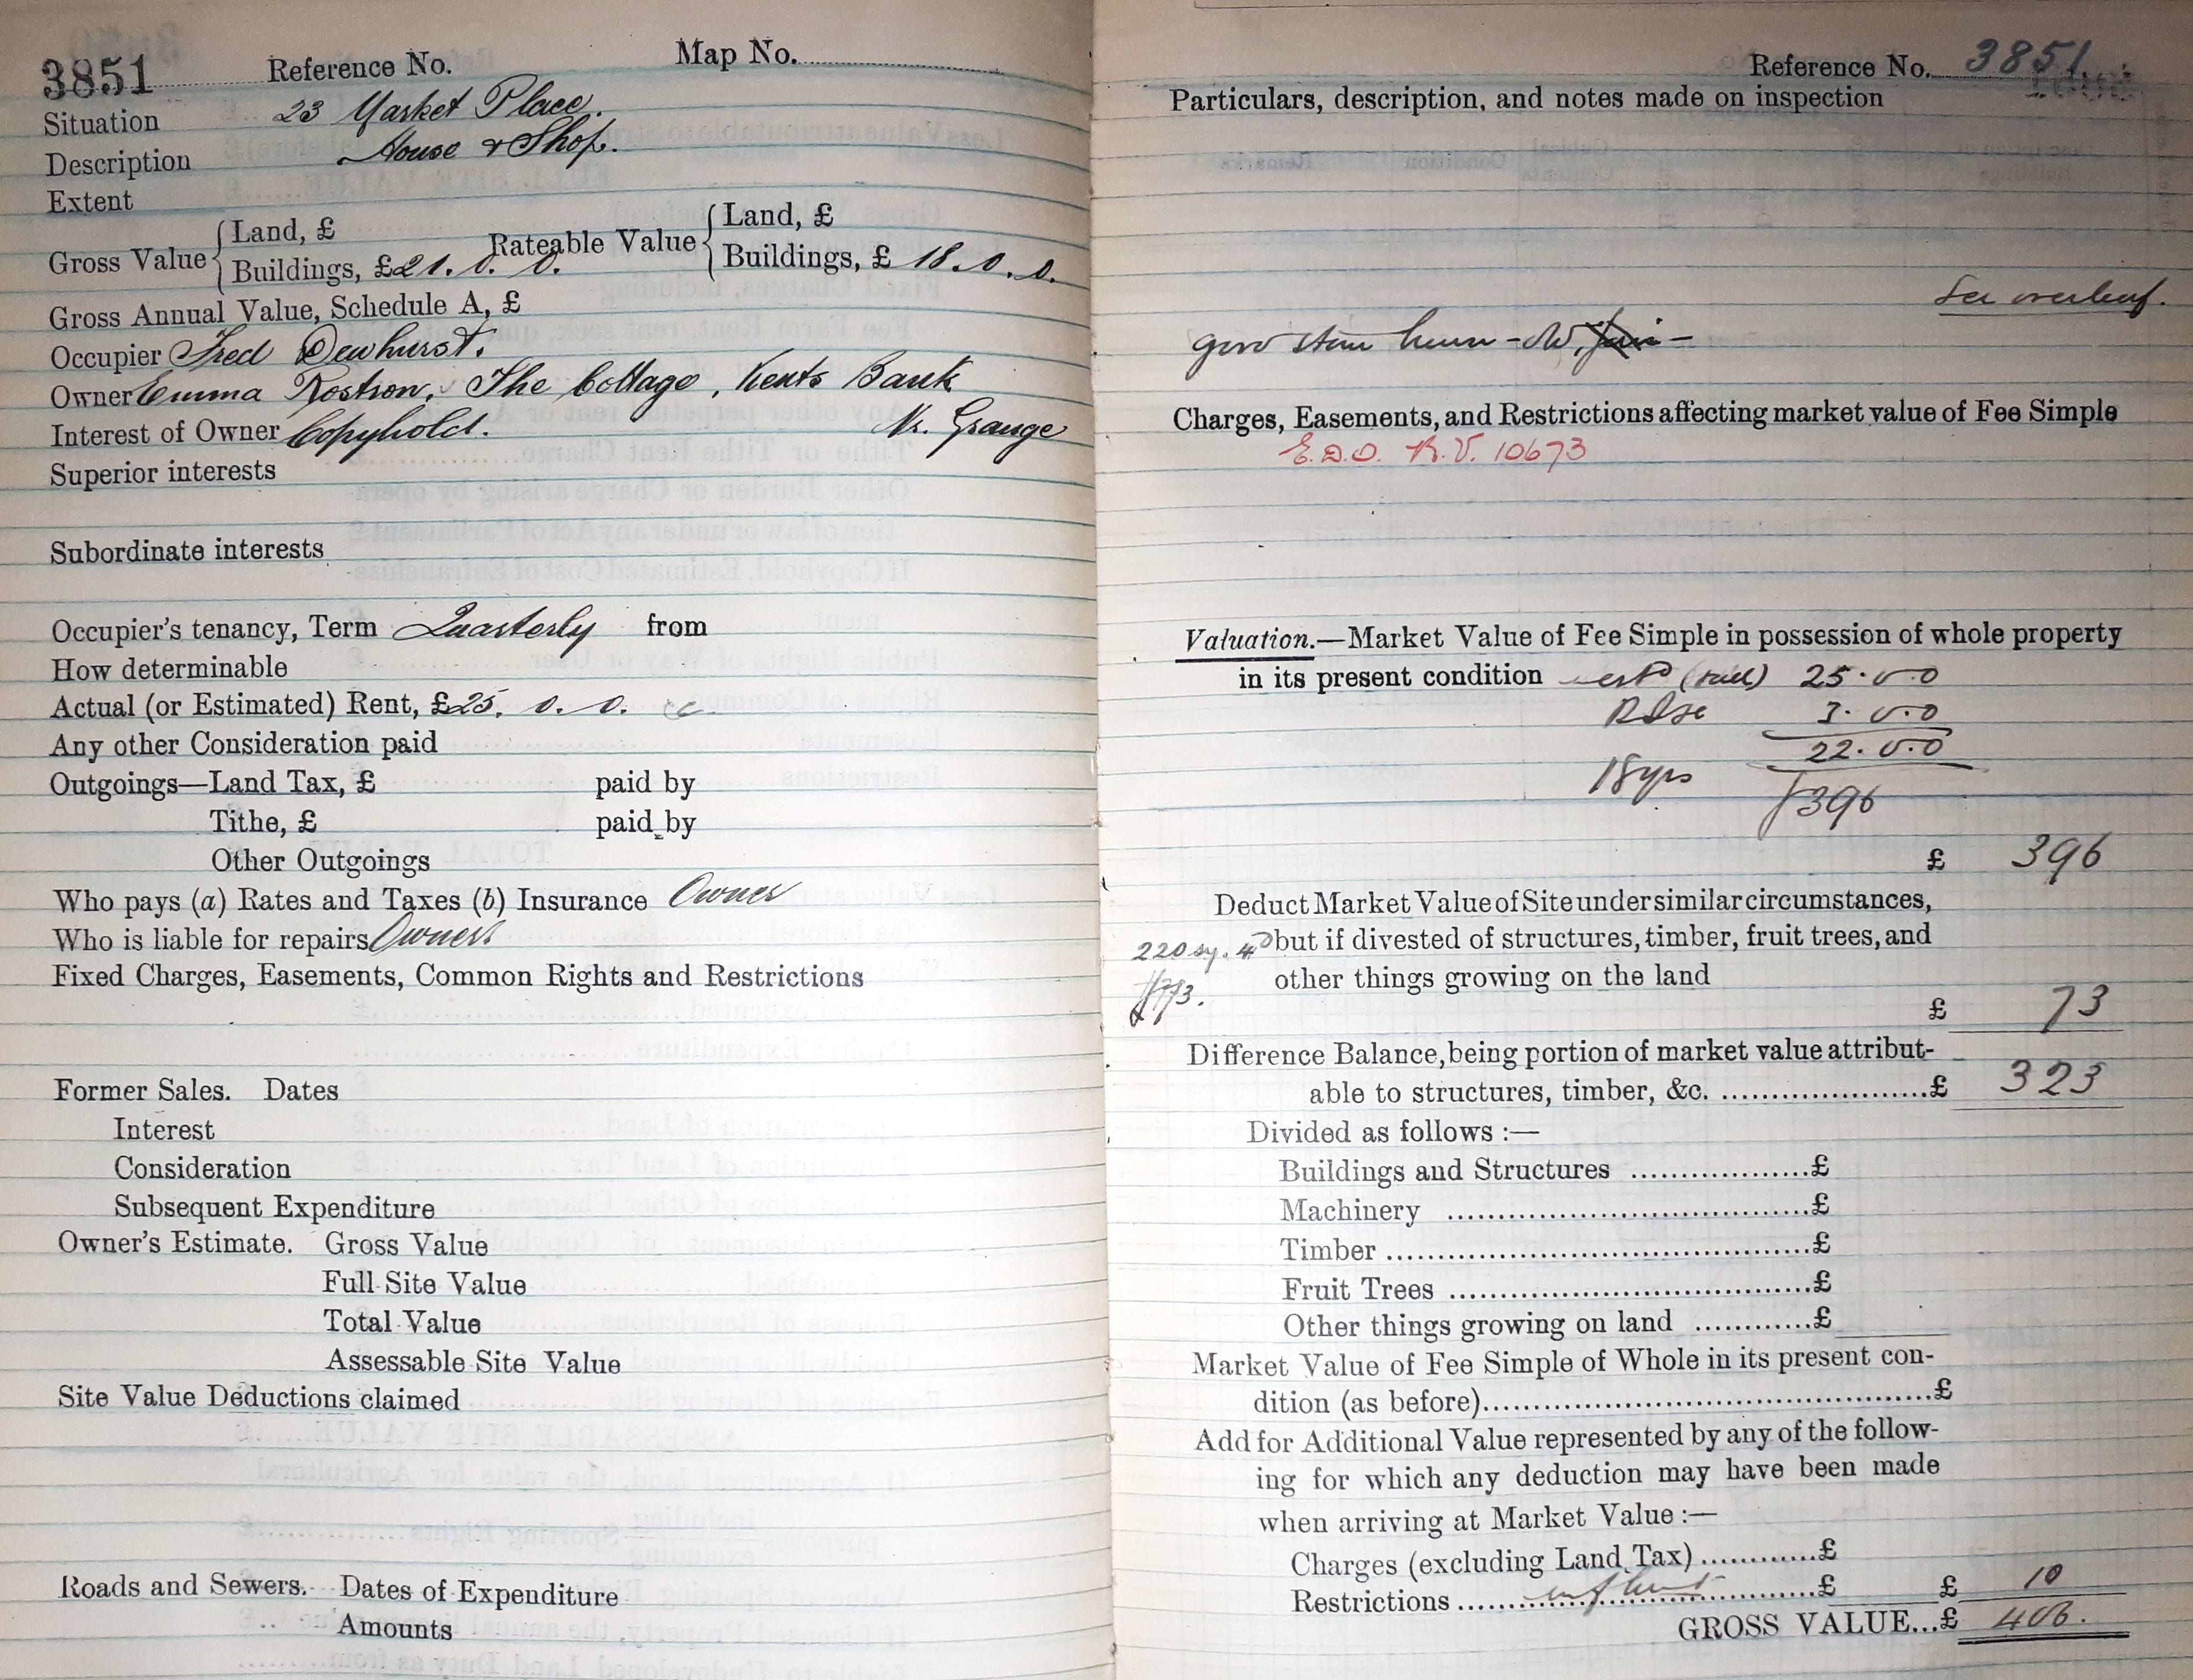 3851 Reference No. Map No.
Situation 23 Market Place.
Description House & Shop.
Extent
Gross Value { Land, £ Rateable Value { Land, £
Buildings, £21. 0. 0. Buildings, £ 18. 0. 0.
Gross Annual Value, Schedule A, £
Occupier Fred Dewhurst.
Owner Emma Rostron, The Cottage, Kents Bank
Interest of Owner Copyhold. Nr. Grange
Superior interests
Subordinate interests
Occupier's tenancy, Term Quarterly from
How determinable
Actual (or Estimated) Rent, £25. 0. 0.
Any other Consideration paid
Outgoings—Land Tax, £ paid by
Tithe, £ paid by
Other Outgoings
Who pays (a) Rates and Taxes (b) Insurance Owner
Who is liable for repairs Owner
Fixed Charges, Easements, Common Rights and Restrictions
Former Sales. Dates
Interest
Consideration
Subsequent Expenditure
Owner's Estimate. Gross Value
Full Site Value
Total Value
Assessable Site Value
Site Value Deductions claimed
Roads and Sewers. Dates of Expenditure
Amounts
Reference No. 3851.
Particulars, description, and notes made on inspection
See overleaf.
good stone house - old,
Charges, Easements, and Restrictions affecting market value of Fee Simple
E.D.O. R.V. 10673
Valuation.—Market Value of Fee Simple in possession of whole property
in its present condition 25.0.0
3.0.0
22.0.0
18 yrs £396
£ 396
Deduct Market Value of Site under similar circumstances,
220 sy. but if divested of structures, timber, fruit trees, and
other things growing on the land
£73.
£ 73
Difference Balance, being portion of market value attribut-
able to structures, timber, &c. £ 323
Divided as follows :—
Buildings and Structures £
Machinery £
Timber £
Fruit Trees £
Other things growing on land £
Market Value of Fee Simple of Whole in its present con-
dition (as before) £
Add for Additional Value represented by any of the follow-
ing for which any deduction may have been made
when arriving at Market Value :—
Charges (excluding Land Tax) £
Restrictions £ £ 10
GROSS VALUE...£ 406.